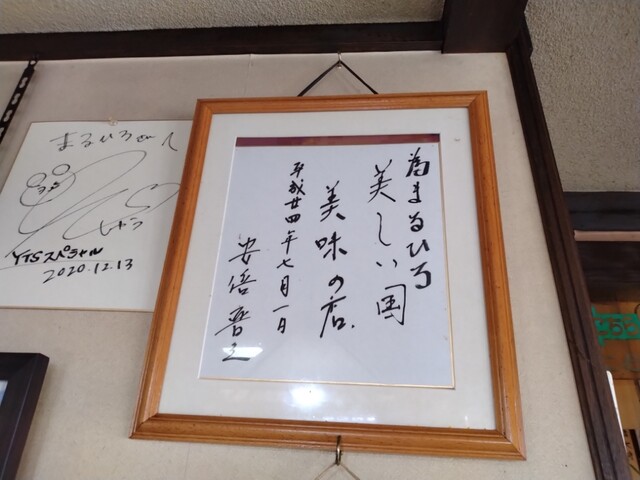 為まるひろ
美しい国
美味の店.
平成廿四年七月一日
安倍晋三
まるひろさん江
YTSスペシャル
2020.12.13